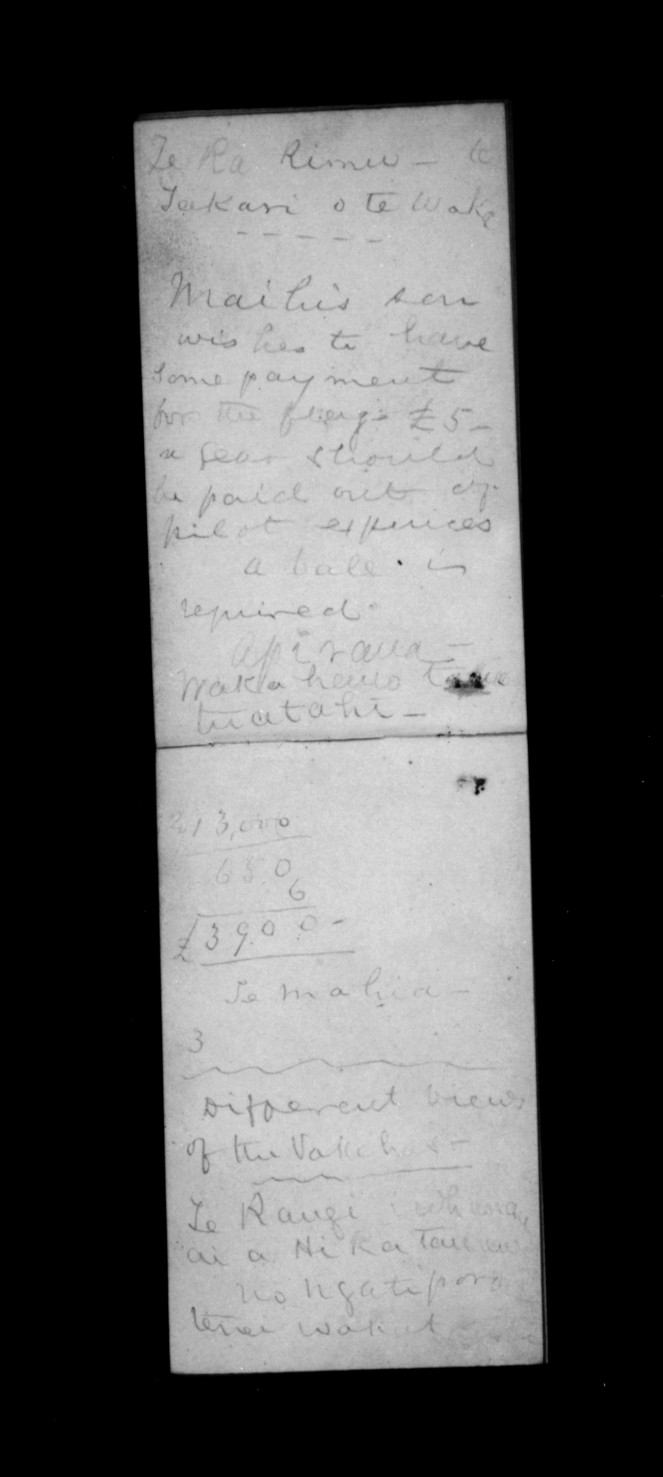 Te Ra Rimu – te
Takari o te Waka
- - - - -
Maihi's son
wishes to have
some payment
for the £5 –
a year should
be paid out of
pilot expences
a bale is
required.
Apirana –
Waka hemo
tuatahi –
13,000
650
6
£3900 –
Te mahia –
3
Different views
of the Pakehas –
Te Rangi i whanau
ai a Hi Ka Tau
no Ngatiporou
tenei